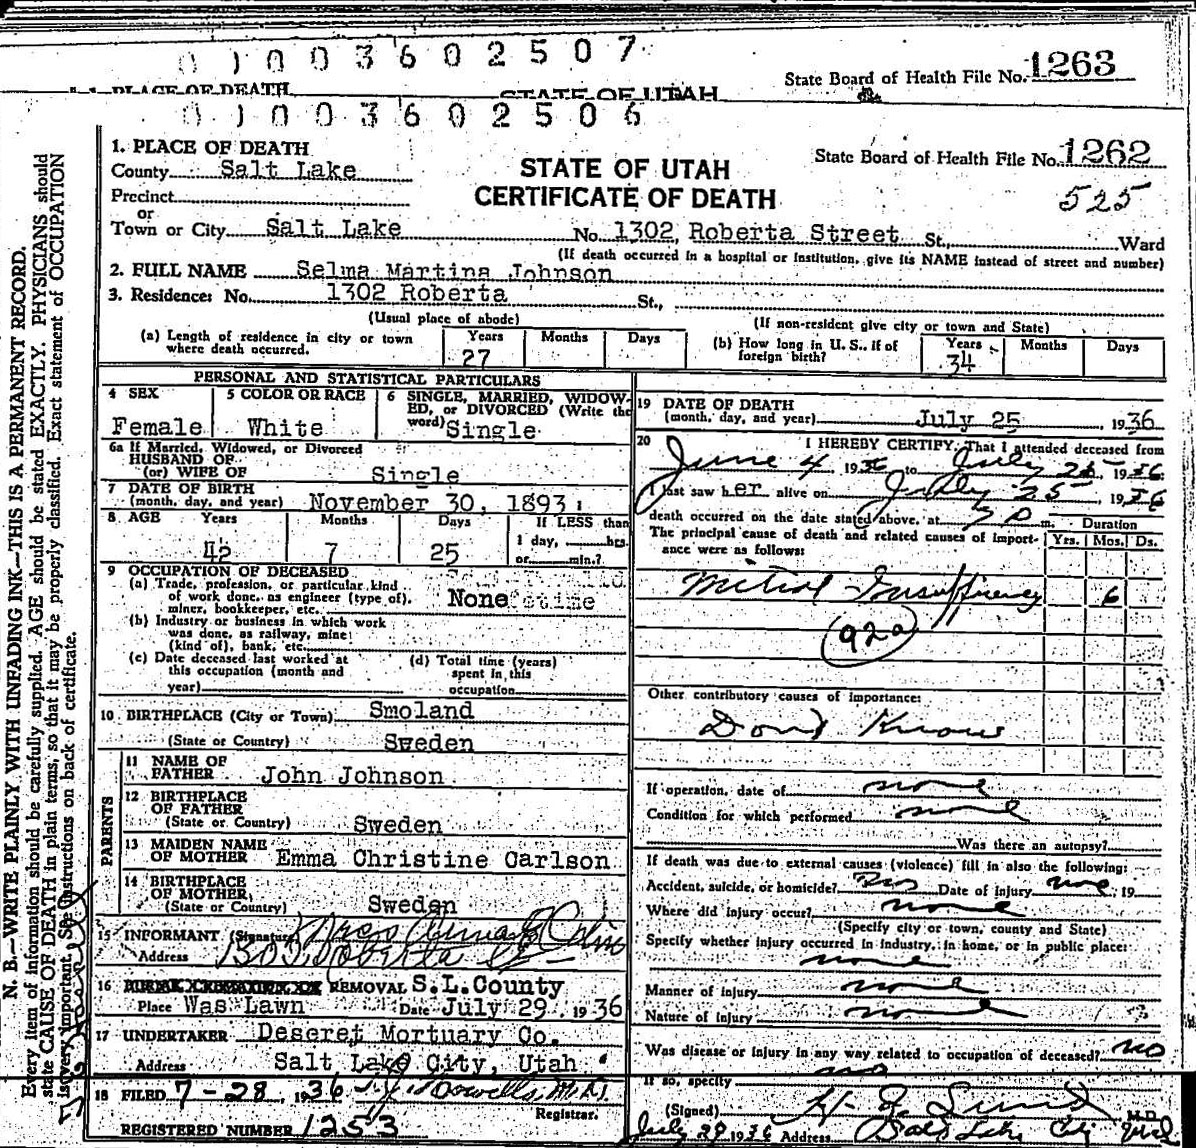 0 1 0 0 3 6 0 2 5 0 7
State Board of Health File No. 1263
1. PLACE OF DEATH
STATE OF UTAH
0 1 0 0 3 6 0 2 5 0 6
1. PLACE OF DEATH
County Salt Lake
Precinct
or
Town or City Salt Lake
STATE OF UTAH
CERTIFICATE OF DEATH
State Board of Health File No. 1262
525
No. 1302, Roberta Street St., Ward
(If death occurred in a hospital or institution, give its NAME instead of street and number)
2. FULL NAME Selma Martina Johnson
3. Residence: No. 1302 Roberta St.,
(Usual place of abode)
(If non-resident give city or town and State)
(a) Length of residence in city or town where death occurred. Years 27 Months Days
(b) How long in U. S., if of foreign birth? Years 34 Months Days
PERSONAL AND STATISTICAL PARTICULARS
4 SEX Female
5 COLOR OR RACE White
6 SINGLE, MARRIED, WIDOWED, or DIVORCED (Write the word) Single
6a If Married, Widowed, or Divorced
HUSBAND OF
(or) WIFE OF Single
7 DATE OF BIRTH
(month, day, and year) November 30, 1893
8 AGE Years 42 Months 7 Days 25
If LESS than
1 day, hrs.
or min.?
9 OCCUPATION OF DECEASED
(a) Trade, profession, or particular kind
of work done, as engineer (type of),
miner, bookkeeper, etc. None
(b) Industry or business in which work
was done, as railway, mine
(kind of), bank, etc.
(c) Date deceased last worked at
this occupation (month and
year)
(d) Total time (years)
spent in this
occupation
10 BIRTHPLACE (City or Town) Smoland
(State or Country) Sweden
PARENTS
11 NAME OF
FATHER John Johnson
12 BIRTHPLACE
OF FATHER
(State or Country) Sweden
13 MAIDEN NAME
OF MOTHER Emma Christine Carlson
14 BIRTHPLACE
OF MOTHER
(State or Country) Sweden
15 INFORMANT (Signature)
Address Roberta St
16 REMOVAL S.L.County
Place Was Lawn Date July 29, 1936
17 UNDERTAKER Deseret Mortuary Co.
Address Salt Lake City, Utah
18 FILED 7-28, 1936 M.D.
Registrar.
REGISTERED NUMBER 1253
19 DATE OF DEATH
(month, day, and year) July 25, 1936
20 I HEREBY CERTIFY, That I attended deceased from
June 4 1936 to July 25 1936
I last saw her alive on July 25, 1936
death occurred on the date stated above, at 7 P m.
Duration
The principal cause of death and related causes of importance were as follows:
Yrs. Mos. Ds.
Mitral Insufficiency 6
92a
Other contributory causes of importance:
Dont Know
If operation, date of none
Condition for which performed none
Was there an autopsy?
If death was due to external causes (violence) fill in also the following:
Accident, suicide, or homicide? no Date of injury none, 19
Where did injury occur? none
(Specify city or town, county and State)
Specify whether injury occurred in industry, in home, or in public place:
none
Manner of injury none
Nature of injury none
Was disease or injury in any way related to occupation of deceased? no
If so, specify no
(Signed) M.D.
July 29 1936 Address Salt Lake City
N. B.—WRITE PLAINLY WITH UNFADING INK—THIS IS A PERMANENT RECORD.
Every item of information should be carefully supplied. AGE should be stated EXACTLY. PHYSICIANS should
state CAUSE OF DEATH in plain terms, so that it may be properly classified. Exact statement of OCCUPATION
is very important. See instructions on back of certificate.